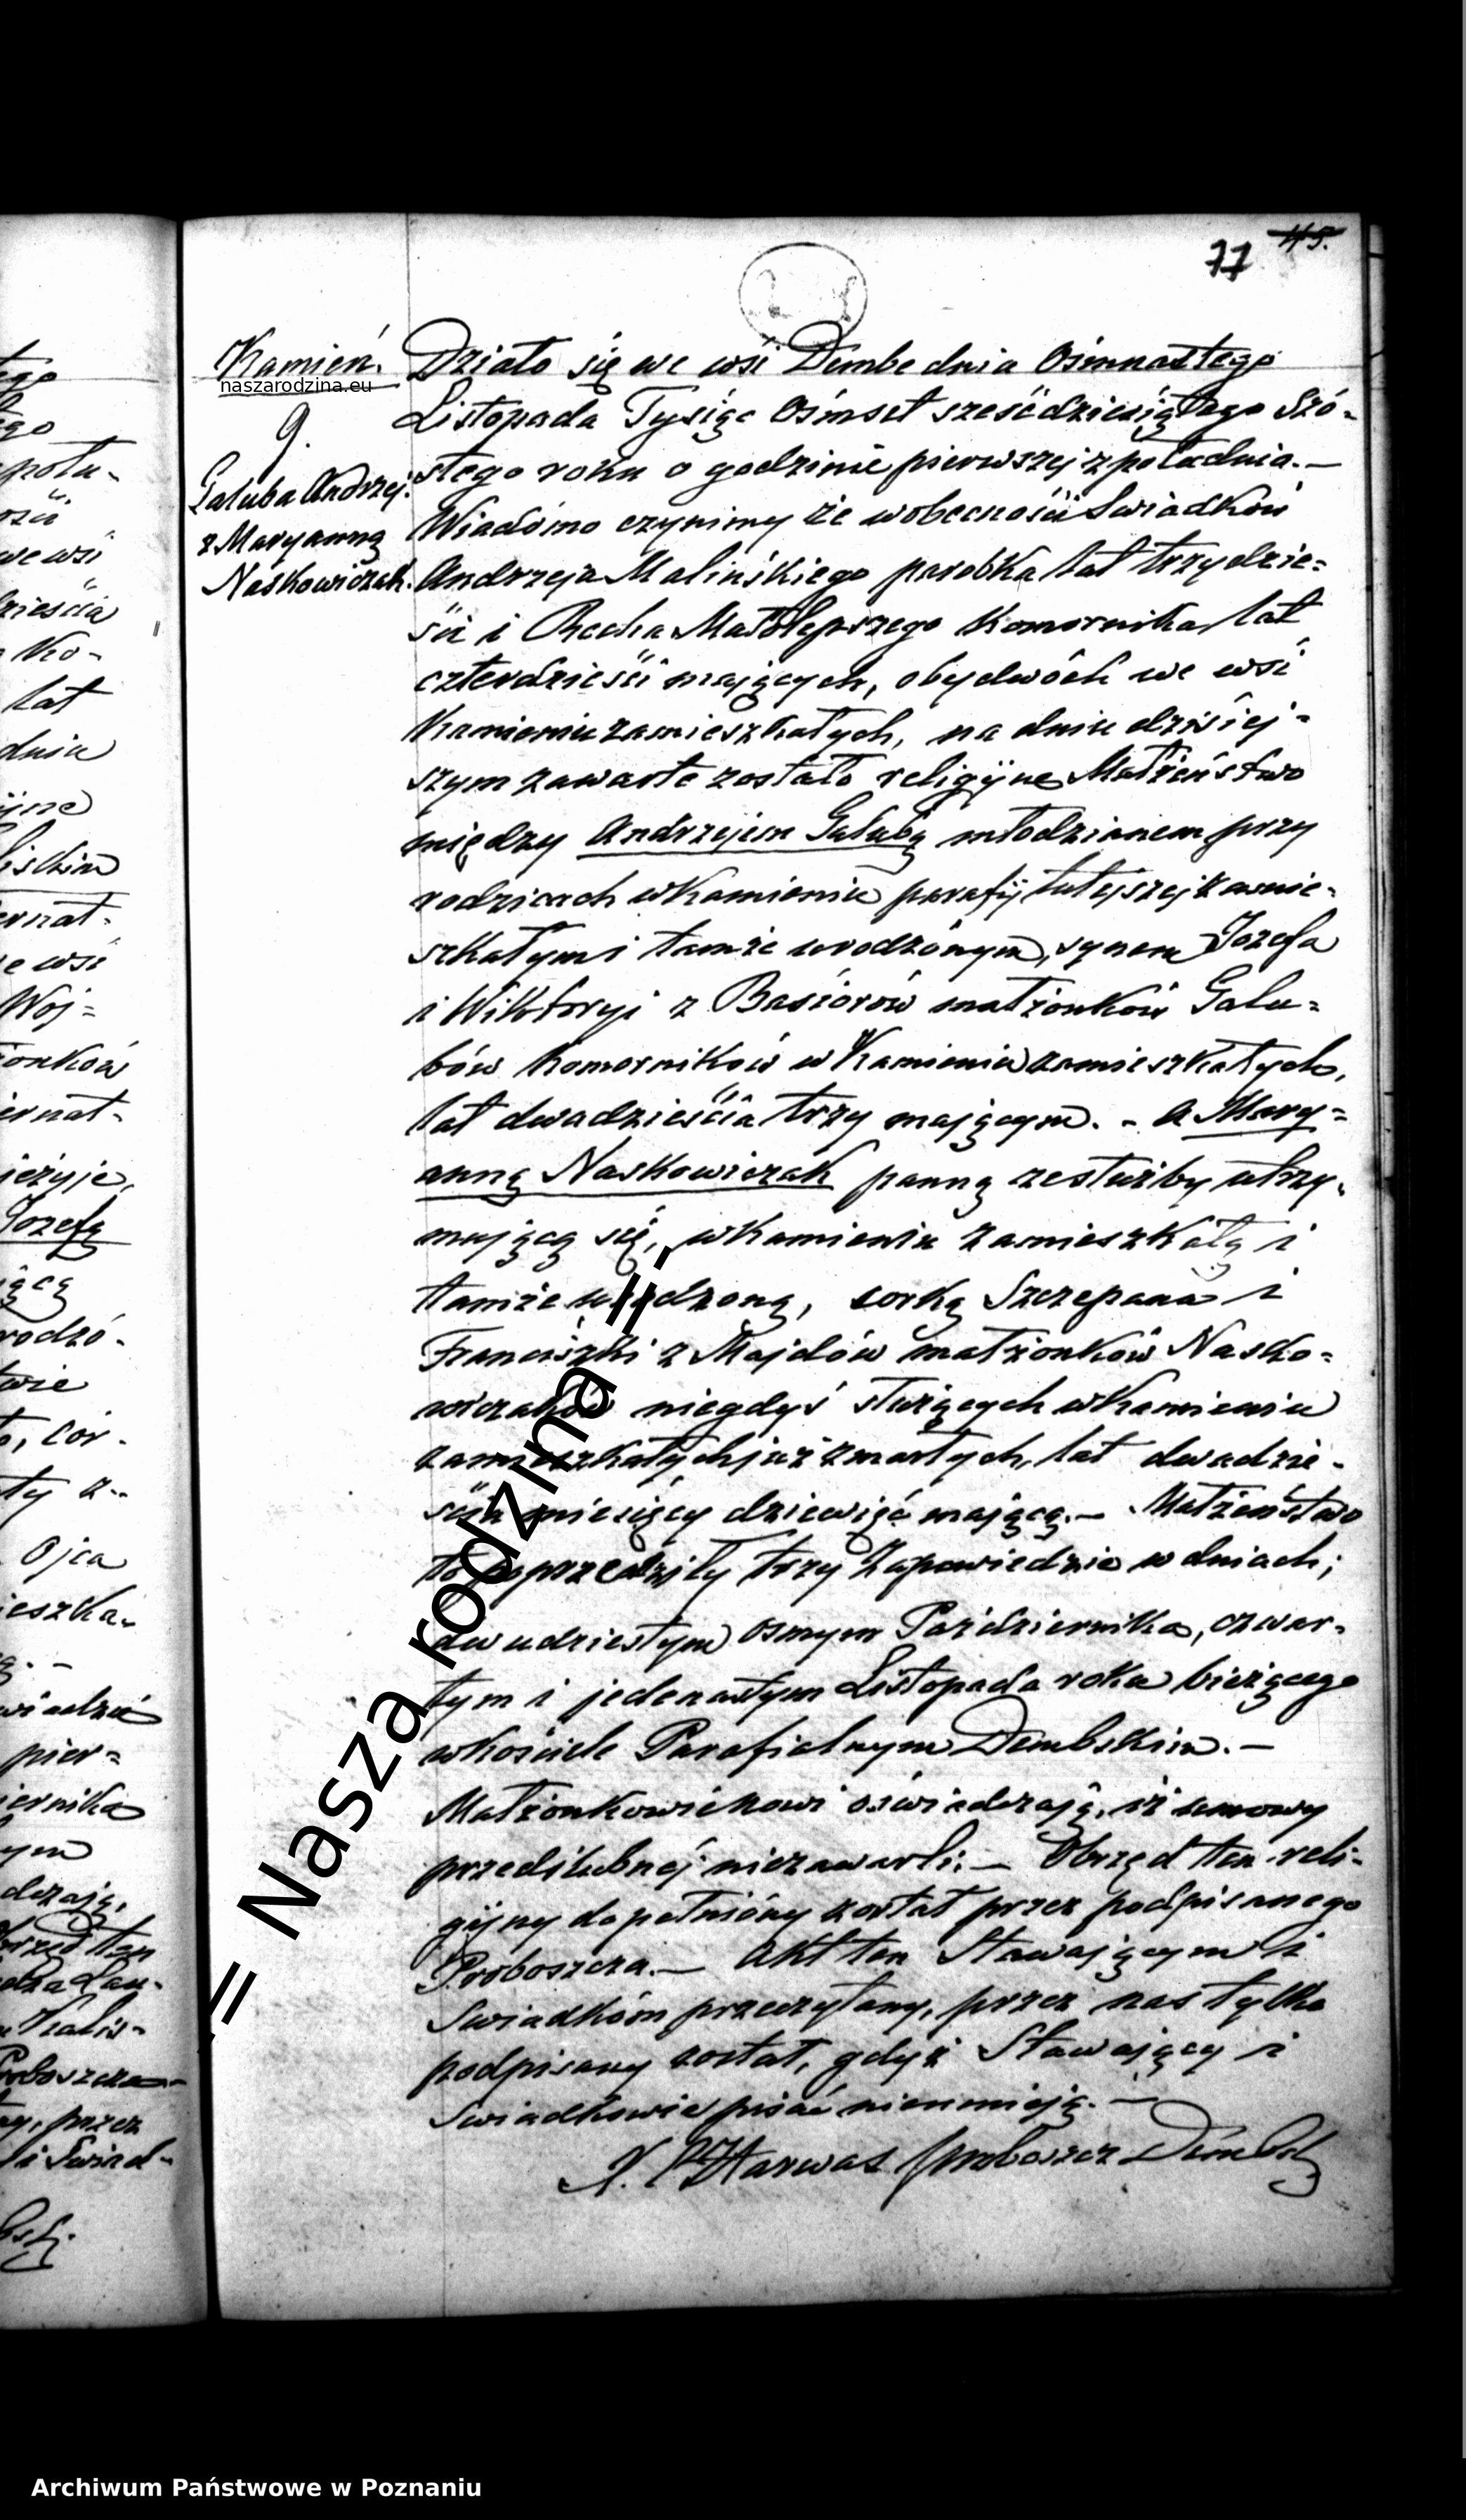 45.
77
Kamień.
naszarodzina.eu
9.
Galuba Andrzej
z Maryanną
Naskowiczak.
Działo się we wsi Dembe dnia Ośmnastego
Listopada Tysiąc Ośmset sześćdziesiątego Szó-
stego roku o godzinie pierwszej z południa.—
Wiadomo czynimy że w obecności Świadków
Andrzeja Malińskiego parobka lat trzydzie-
ści i Rocha Małolepszego Komornika lat
czterdzieści mających, obydwóch we wsi
Kamieniu zamieszkałych, na dniu dzisiej-
szym zawarte zostało religijne Małżeństwo
między Andrzejem Galubą młodzianem przy
rodzicach w Kamieniu parafij tutejszej zamie-
szkałym i tamże urodzonym, synem Jozefa
i Wiktoryi z Basiorów małżonków Galu-
bów Komorników w Kamieniu zamieszkałych,
lat dwadzieścia trzy mającym. - a Mary-
anną Naskowiczak panną ze służby utrzy-
mującą się, w Kamieniu zamieszkałą i
tamże urodzoną, corką Szczepana i
Franciszki z Majdów małżonków Nasko-
wiczaków niegdyś służących w Kamieniu
zamieszkałych już zmarłych, lat dwadzie-
ścia miesięcy dziewięć mającą.— Małżeństwo
to poprzedziły trzy Zapowiedzie w dniach;
dwudziestym osmym Października, czwar-
tym i jedenastym Listopada roku bieżącego
w kościele Parafialnym Dembskim.—
Małżonkowie nowi oświadczają, iż umowy
przedślubnej niezawarli.— Obrzęd ten reli-
gijny dopełniony został przez podpisanego
Proboszcza.— Akt ten Stawającym i
Świadkom przeczytany, przez nas tylko
podpisany został, gdyż Stawający i
Świadkowie pisać nieumieją.—
X. Harwas Proboszcz Dembski
=- Nasza rodzina -=
Archiwum Państwowe w Poznaniu